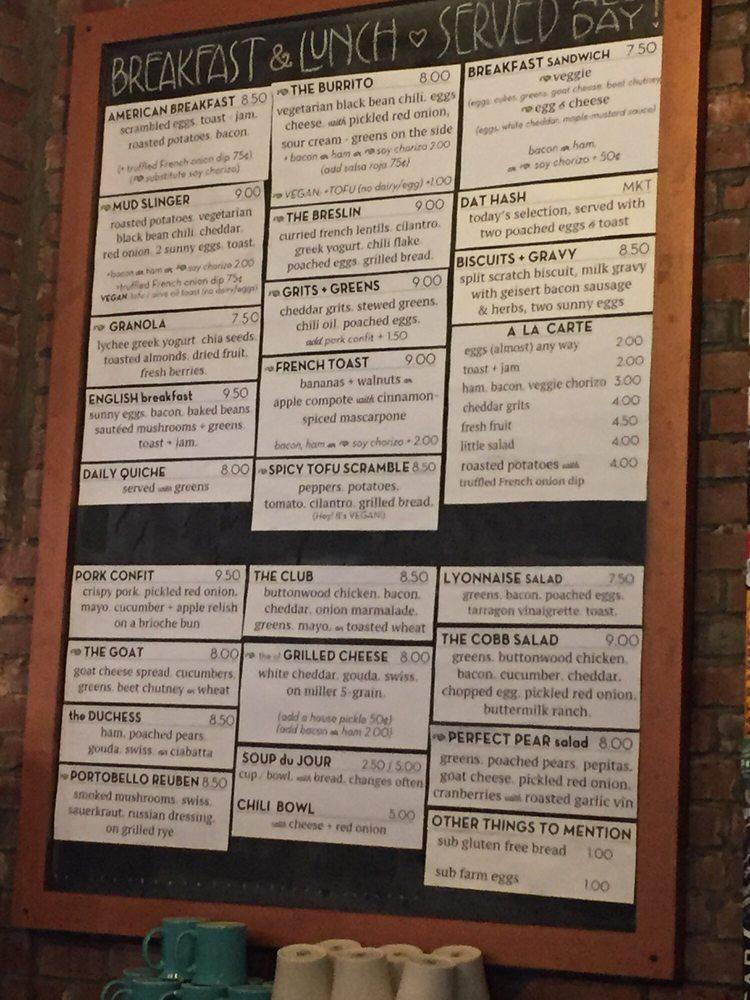 BREAKFAST & LUNCH ♡ SERVED ALL DAY!
AMERICAN BREAKFAST 8.50
scrambled eggs. toast + jam.
roasted potatoes. bacon.
(+ truffled French onion dip 75¢)
(substitute soy chorizo)
MUD SLINGER 9.00
roasted potatoes. vegetarian
black bean chili. cheddar.
red onion. 2 sunny eggs. toast.
+bacon or ham or soy chorizo 2.00
+truffled French onion dip 75¢
VEGAN: tofu / olive oil toast (no dairy/eggs)
GRANOLA 7.50
lychee greek yogurt. chia seeds.
toasted almonds. dried fruit.
fresh berries.
ENGLISH breakfast 9.50
sunny eggs. bacon. baked beans
sautéed mushrooms + greens.
toast + jam.
DAILY QUICHE 8.00
served with greens
THE BURRITO 8.00
vegetarian black bean chili. eggs
cheese. with pickled red onion,
sour cream - greens on the side
+ bacon or ham or soy chorizo 2.00
(add salsa roja 75¢)
VEGAN: +TOFU (no dairy/egg) +1.00
THE BRESLIN 9.00
curried french lentils. cilantro.
greek yogurt. chili flake.
poached eggs. grilled bread.
GRITS + GREENS 9.00
cheddar grits. stewed greens.
chili oil. poached eggs.
add pork confit + 1.50
FRENCH TOAST 9.00
bananas + walnuts or
apple compote with cinnamon-
spiced mascarpone
bacon, ham or soy chorizo + 2.00
SPICY TOFU SCRAMBLE 8.50
peppers. potatoes.
tomato. cilantro. grilled bread.
(Hey! It's VEGAN!)
BREAKFAST SANDWICH 7.50
veggie
(eggs, cukes, greens, goat cheese, beet chutney)
egg & cheese
(eggs, white cheddar, maple-mustard sauce)
bacon or ham.
or soy chorizo + 50¢
DAT HASH MKT
today's selection, served with
two poached eggs & toast
BISCUITS + GRAVY 8.50
split scratch biscuit, milk gravy
with geisert bacon sausage
& herbs, two sunny eggs
A LA CARTE
eggs (almost) any way 2.00
toast + jam 2.00
ham. bacon. veggie chorizo 3.00
cheddar grits 4.00
fresh fruit 4.50
little salad 4.00
roasted potatoes with 4.00
truffled French onion dip
PORK CONFIT 9.50
crispy pork. pickled red onion.
mayo. cucumber + apple relish
on a brioche bun
THE GOAT 8.00
goat cheese spread. cucumbers.
greens. beet chutney on wheat
the DUCHESS 8.50
ham. poached pears.
gouda. swiss. on ciabatta
PORTOBELLO REUBEN 8.50
smoked mushrooms. swiss.
sauerkraut. russian dressing.
on grilled rye
THE CLUB 8.50
buttonwood chicken. bacon.
cheddar. onion marmalade.
greens. mayo. on toasted wheat
the ol' GRILLED CHEESE 8.00
white cheddar. gouda. swiss.
on miller 5-grain.
(add a house pickle 50¢)
(add bacon or ham 2.00)
SOUP du JOUR 2.50 / 5.00
cup / bowl. with bread. changes often
CHILI BOWL 5.00
with cheese + red onion
LYONNAISE SALAD 7.50
greens. bacon. poached eggs.
tarragon vinaigrette. toast.
THE COBB SALAD 9.00
greens. buttonwood chicken.
bacon. cucumber. cheddar.
chopped egg. pickled red onion.
buttermilk ranch.
PERFECT PEAR salad 8.00
greens. poached pears. pepitas.
goat cheese. pickled red onion.
cranberries with roasted garlic vin
OTHER THINGS TO MENTION
sub gluten free bread 1.00
sub farm eggs 1.00